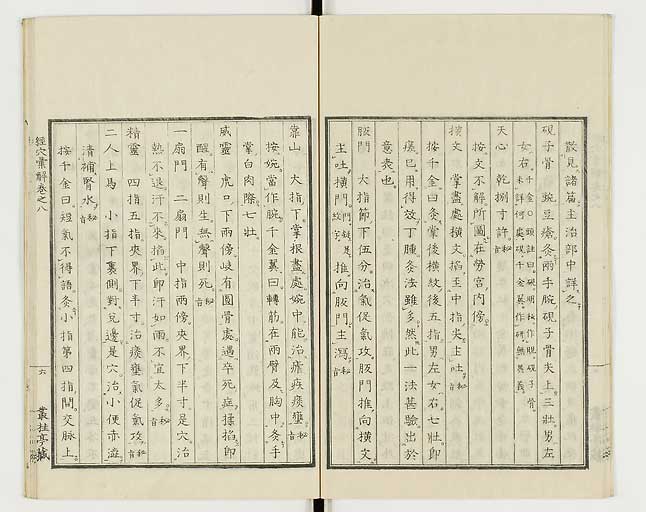 散見諸篇主治部中詳之
硯子骨 豌豆瘡灸兩手腕硯子骨尖上三壯男左
女右
天心 乾掇寸許
按文不解所圖在勞宮內傍
橫文 掌盡處橫文掐主中指尖主吐
按千金曰灸掌後橫紋後五指男左女右七壯即
瘥已用得效丁腫灸法雖多然此一法甚驗出於
意表也
版門 大指節下伍分治氣促氣攻版門推向橫文
主吐橫門推向版門主瀉
靠山 大指下掌根盡處婉中能治瘧疾痰壅
按婉當作腕千金翼曰轉筋在兩臂及胸中灸手
掌白肉際七壯
威靈 虎口下兩傍岐有圓骨處遇卒死症揉掐即
醒有聲則生無聲則死
一扇門 二扇門 中指兩傍夾界下半寸是穴治
熱不退汗不來掐此即汗如雨不宜太多
精靈 四指五指夾界下半寸治痰壅氣促氣攻
二人上馬 小指下裏側對兌邊是穴治小便赤澁
清補腎水
按千金曰短氣不得語灸小指第四指間交脈上
經穴彙解卷之八
六
叢桂亭藏